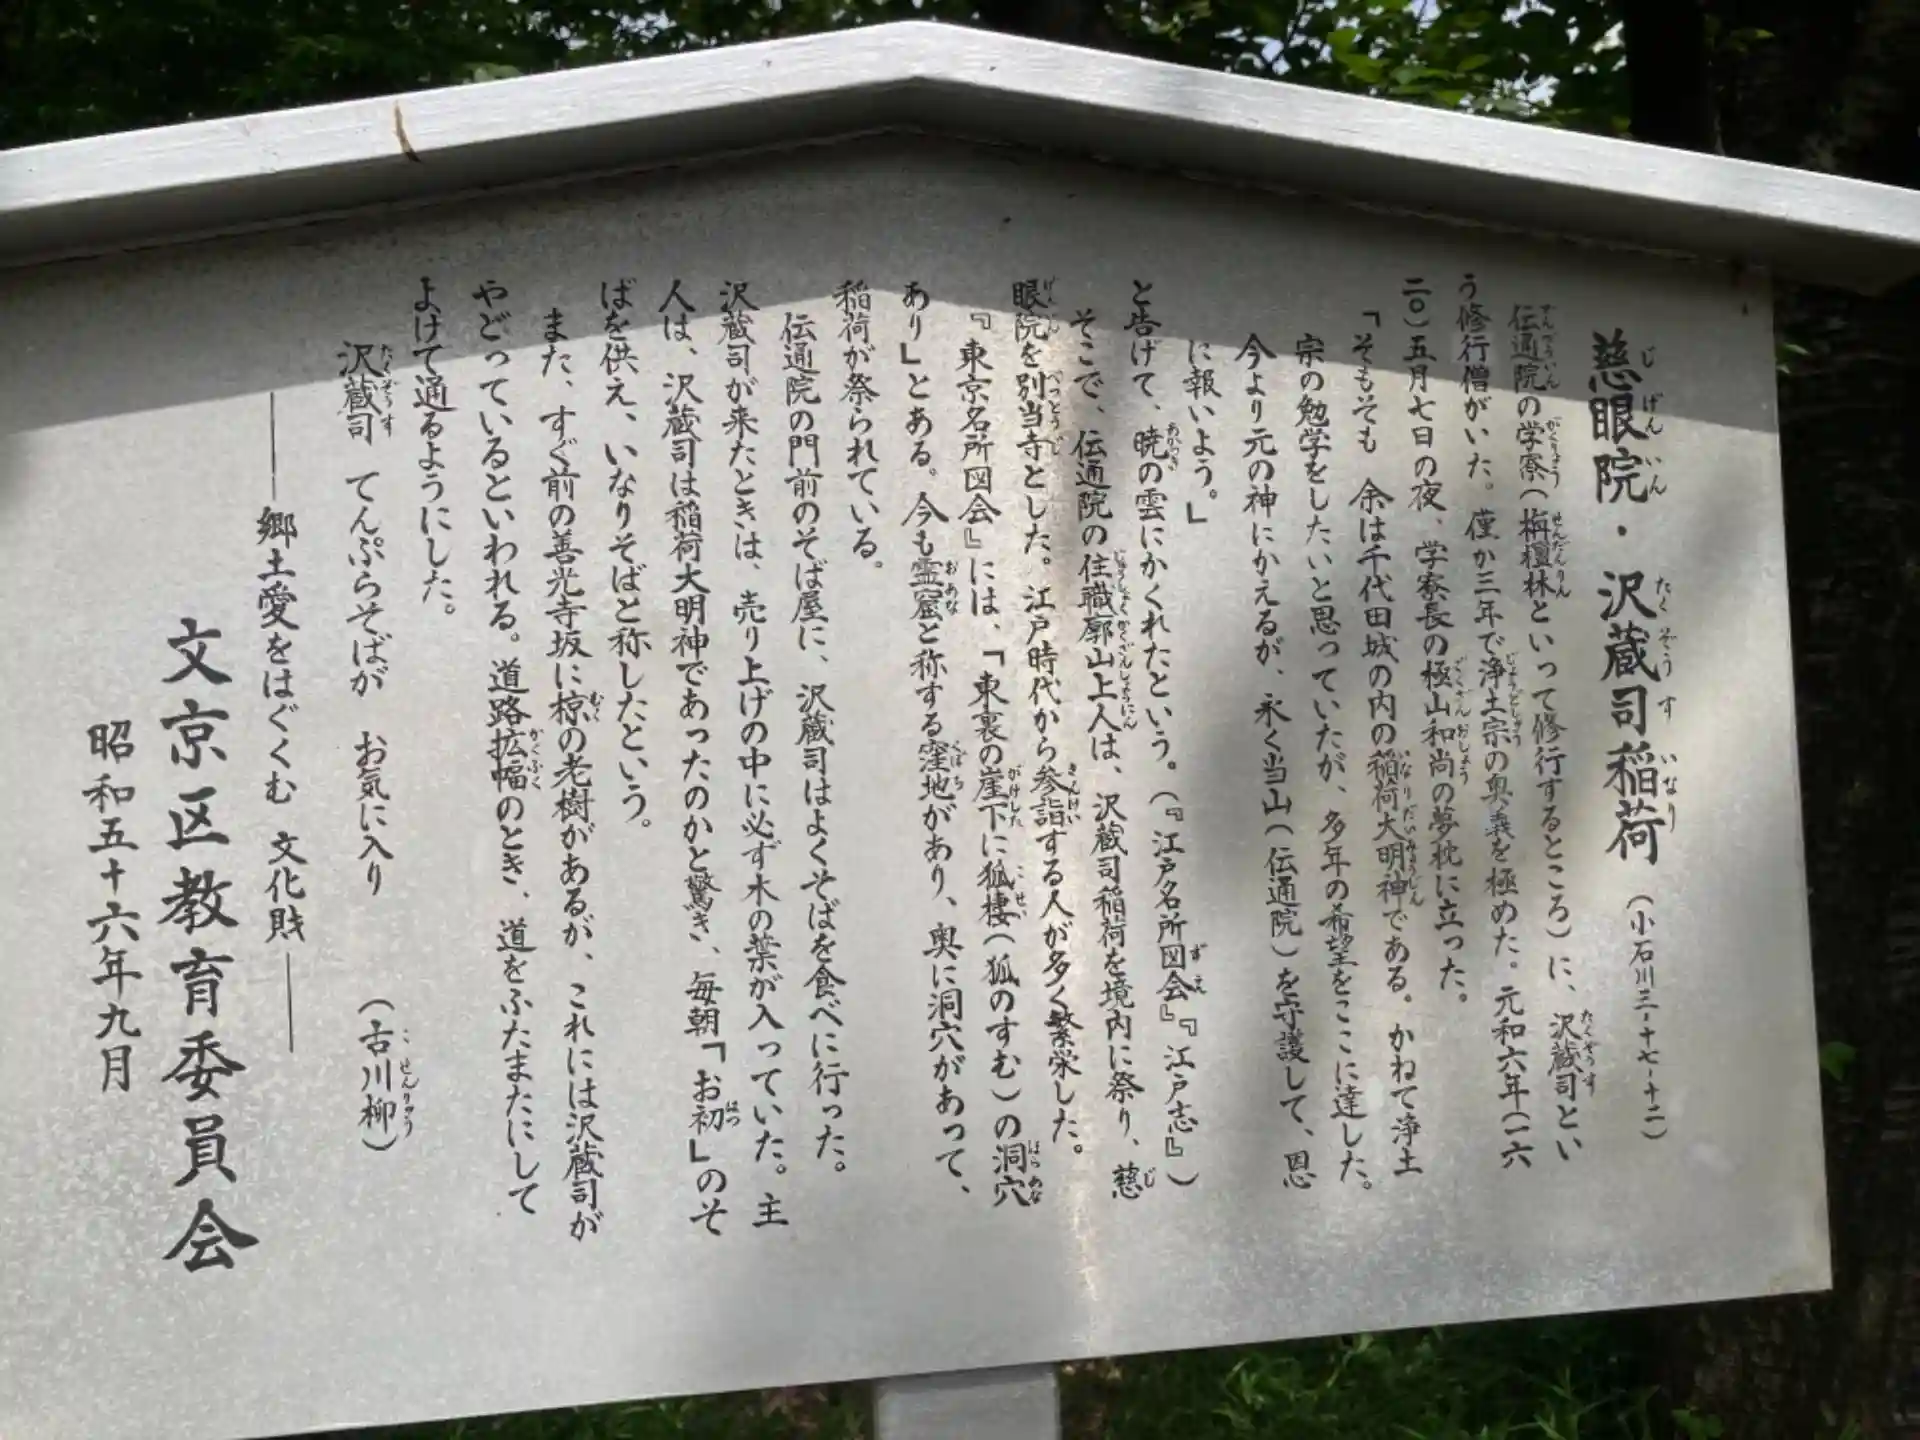 慈眼院・沢蔵司稲荷(小石川三-十七-十二)
伝通院の学寮(栴檀林といって修行するところ)に、沢蔵司とい
う修行僧がいた。僅か三年で浄土宗の奥義を極めた。元和六年(一六
二〇)五月七日の夜、学寮長の極山和尚の夢枕に立った。
「そもそも 余は千代田城の内の稲荷大明神である。かねて浄土
宗の勉学をしたいと思っていたが、多年の希望をここに達した。
今より元の神にかえるが、永く当山(伝通院)を守護して、恩
に報いよう。」
と告げて、暁の雲にかくれたという。(『江戸名所図会』『江戸志』)
そこで、伝通院の住職廓山上人は、沢蔵司稲荷を境内に祭り、慈
眼院を別当寺とした。江戸時代から参詣する人が多く繁栄した。
『東京名所図会』には、「東裏の崖下に狐棲(狐のすむ)の洞穴
あり」とある。今も霊窟と称する窪地があり、奥に洞穴があって、
稲荷が祭られている。
伝通院の門前のそば屋に、沢蔵司はよくそばを食べに行った。
沢蔵司が来たときは、売り上げの中に必ず木の葉が入っていた。主
人は、沢蔵司は稲荷大明神であったのかと驚き、毎朝「お初」のそ
ばを供え、いなりそばと称したという。
また、すぐ前の善光寺坂に椋の老樹があるが、これには沢蔵司が
やどっているといわれる。道路拡幅のとき、道をふたまたにして
よけて通るようにした。
沢蔵司 てんぷらそばが お気に入り (古川柳)
――郷土愛をはぐくむ 文化財――
文京区教育委員会
昭和五十六年九月